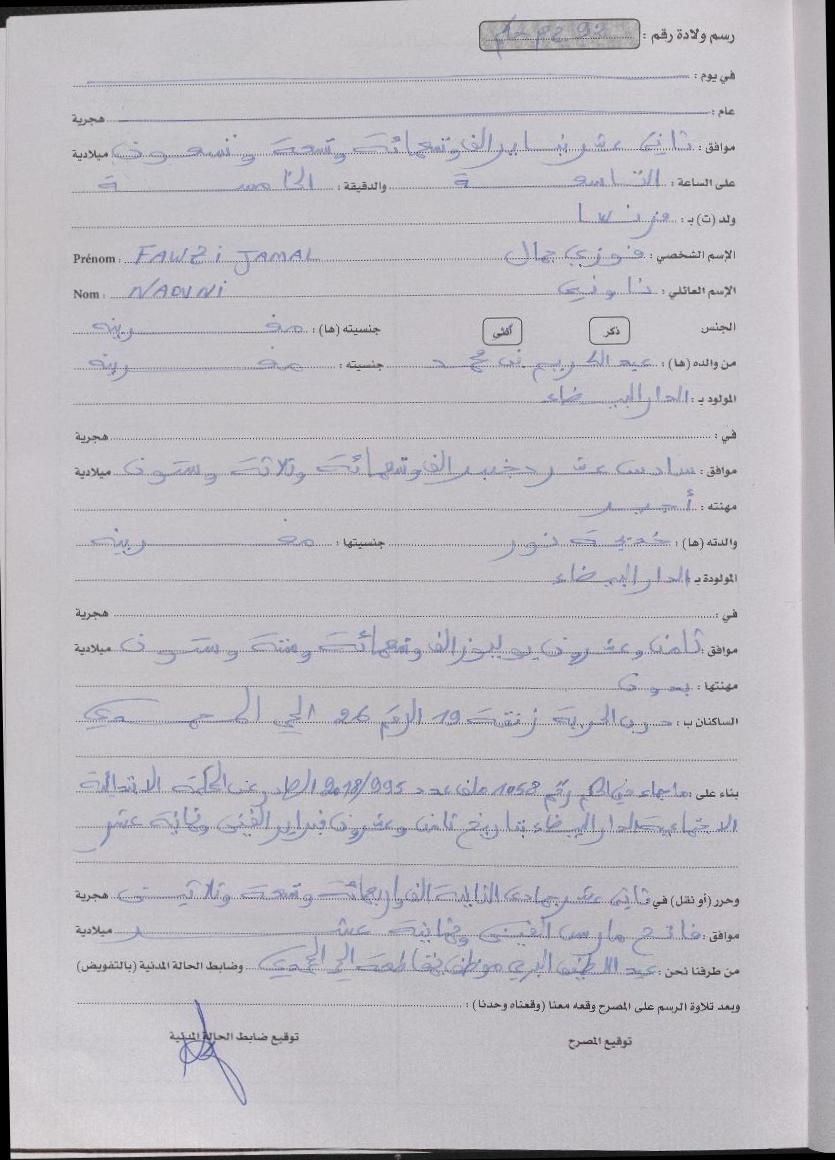 رسم ولادة رقم : 92 ج م حكم
في يوم :
عام : هجرية
موافق : ثاني عشر يناير الف وتسعمائة وتسعة وتسعون ميلادية
على الساعة : التاسعة والدقيقة : الخامسة
ولد (ت) بـ : فرنسا
الإسم الشخصي : فوزي جمال Prénom : FAWZi JAMAL
الإسم العائلي : ناوني Nom : NAOUNi
الجنس ذكر أنثى جنسيته (ها) : مغربية
من والده (ها) : عبد الكريم بن محمد جنسيته : مغربية
المولود بـ : الدار البيضاء
في : هجرية
موافق : سادس عشر دجنبر الف وتسعمائة وثلاثة وستون ميلادية
مهنته : أجير
والدته (ها) : خديجة نور جنسيتها : مغربية
المولودة بـ : الدار البيضاء
في : هجرية
موافق : ثامن وعشرون يوليوز الف وتسعمائة وستة وستون ميلادية
مهنتها : بدون
الساكنان ب : درب الحرية زنقة 19 الرقم 26 الحي المحمدي
بناء على : ما جاء في الحكم رقم 1068 ملف عدد 2018/995 الصادر عن المحكمة الابتدائية
الاجتماعية الدار البيضاء بتاريخ ثامن وعشرون فبراير الفين وثمانية عشر
وحرر (أو نقل) في : ثاني عشر جمادى الثانية الف واربعمائة وتسعة وثلاثين هجرية
موافق : فاتح مارس الفين وثمانية عشر ميلادية
من طرفنا نحن : عبد اللطيف موظف بمقاطعة الحي المحمدي وضابط الحالة المدنية (بالتفويض)
وبعد تلاوة الرسم على المصرح وقعه معنا (وقعناه وحدنا) :
توقيع المصرح توقيع ضابط الحالة المدنية